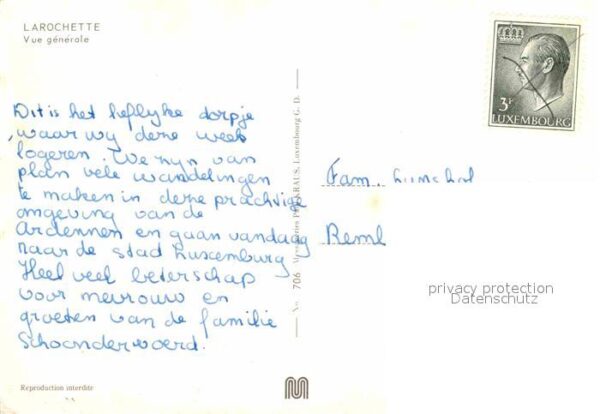 LAROCHETTE
Vue générale
3F
LUXEMBOURG
Dit is het lieflijke dorpje
waar wij deze week
logeren. We zijn van
plan vele wandelingen
te maken in deze prachtige
omgeving van de
Ardennen en gaan vandaag
naar de stad Luxemburg
Heel veel beterschap
voor mevrouw en
groeten van de familie
Schoonderwoerd.
No 706 Messageries P. KRAUS, Luxembourg G. D.
Fam.
privacy protection
Datenschutz
Reproduction interdite